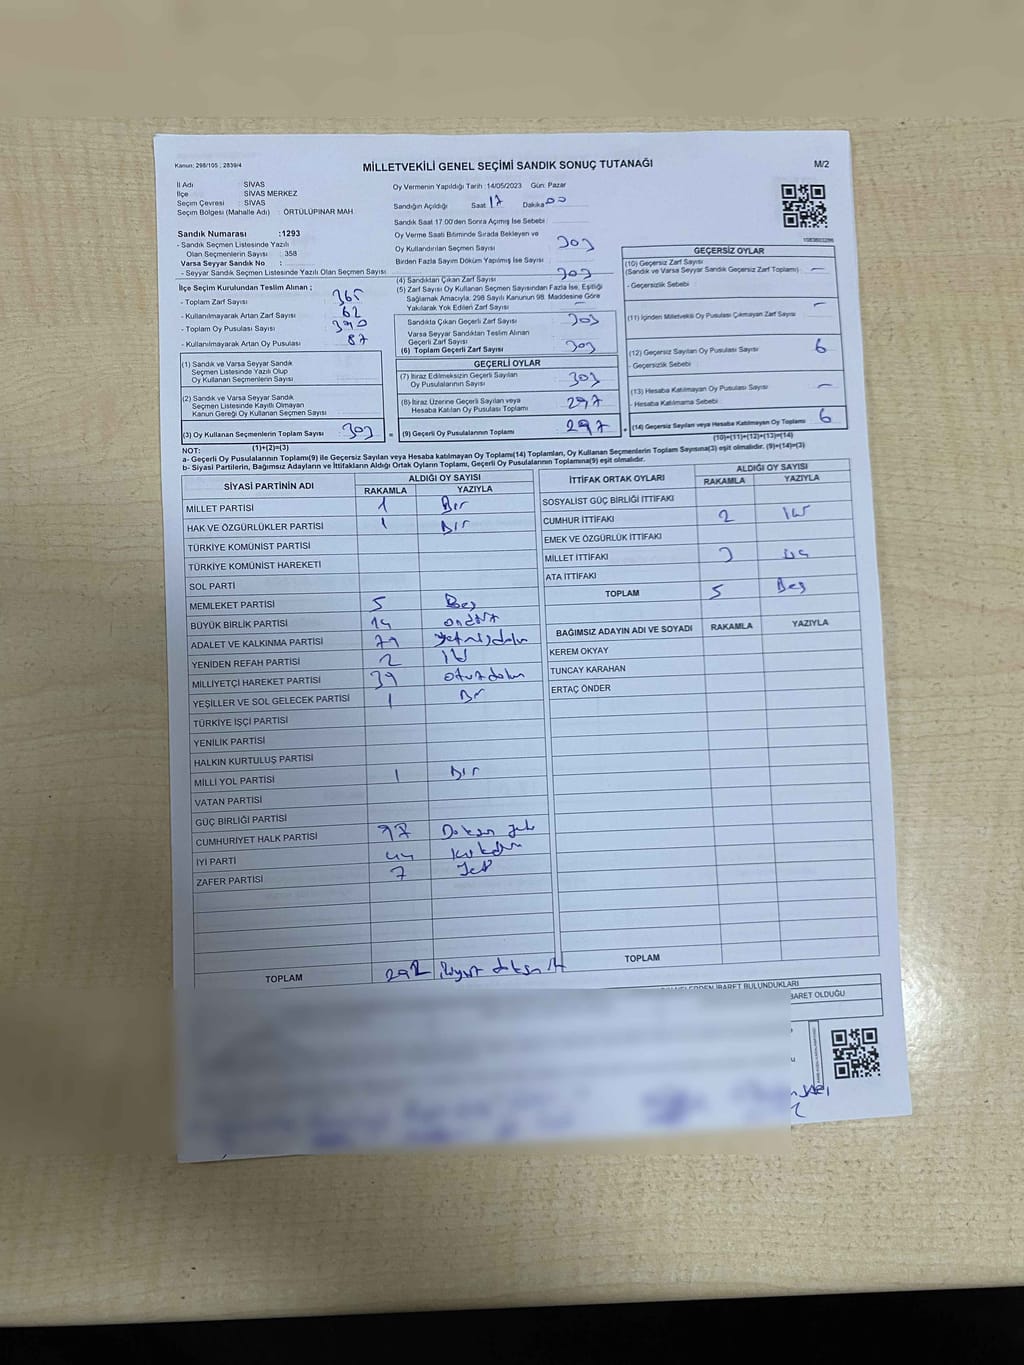 Kanun: 298/105 ; 2839/4
MİLLETVEKİLİ GENEL SEÇİMİ SANDIK SONUÇ TUTANAĞI
M/2
İl Adı SİVAS
İlçe SİVAS MERKEZ
Seçim Çevresi SİVAS
Seçim Bölgesi (Mahalle Adı) : ÖRTÜLÜPINAR MAH
Oy Vermenin Yapıldığı Tarih :14/05/2023 Gün: Pazar
Sandığın Açıldığı Saat 17 Dakika 00
Sandık Saat 17:00'den Sonra Açılmış İse Sebebi :
Sandık Numarası :1293
- Sandık Seçmen Listesinde Yazılı
Olan Seçmenlerin Sayısı : 358
Varsa Seyyar Sandık No :
- Seyyar Sandık Seçmen Listesinde Yazılı Olan Seçmen Sayısı
Oy Verme Saati Bitiminde Sırada Bekleyen ve
Oy Kullandırılan Seçmen Sayısı 303
Birden Fazla Sayım Döküm Yapılmış İse Sayısı :
İlçe Seçim Kurulundan Teslim Alınan ;
- Toplam Zarf Sayısı 365
- Kullanılmayarak Artan Zarf Sayısı 62
- Toplam Oy Pusulası Sayısı 390
- Kullanılmayarak Artan Oy Pusulası 87
(1) Sandık ve Varsa Seyyar Sandık
Seçmen Listesinde Yazılı Olup
Oy Kullanan Seçmenlerin Sayısı
(2) Sandık ve Varsa Seyyar Sandık
Seçmen Listesinde Kayıtlı Olmayan
Kanun Gereği Oy Kullanan Seçmen Sayısı
(3) Oy Kullanan Seçmenlerin Toplam Sayısı 303
(1)+(2)=(3)
(4) Sandıktan Çıkan Zarf Sayısı 303
(5) Zarf Sayısı Oy Kullanan Seçmen Sayısından Fazla İse, Eşitliği
Sağlamak Amacıyla; 298 Sayılı Kanunun 98. Maddesine Göre
Yakılarak Yok Edilen Zarf Sayısı –
Sandıkta Çıkan Geçerli Zarf Sayısı 303
Varsa Seyyar Sandıktan Teslim Alınan
Geçerli Zarf Sayısı
(6) Toplam Geçerli Zarf Sayısı 303
GEÇERLİ OYLAR
(7) İtiraz Edilmeksizin Geçerli Sayılan
Oy Pusulalarının Sayısı 303
(8) İtiraz Üzerine Geçerli Sayılan veya
Hesaba Katılan Oy Pusulası Toplamı 297
= (9) Geçerli Oy Pusulalarının Toplamı 297
GEÇERSİZ OYLAR
(10) Geçersiz Zarf Sayısı
(Sandık ve Varsa Seyyar Sandık Geçersiz Zarf Toplamı) –
- Geçersizlik Sebebi :
(11) İçinden Milletvekili Oy Pusulası Çıkmayan Zarf Sayısı –
(12) Geçersiz Sayılan Oy Pusulası Sayısı 6
- Geçersizlik Sebebi :
(13) Hesaba Katılmayan Oy Pusulası Sayısı –
- Hesaba Katılmama Sebebi :
+ (14) Geçersiz Sayılan veya Hesaba Katılmayan Oy Toplamı 6
(10)+(11)+(12)+(13)=(14)
NOT:
a- Geçerli Oy Pusulalarının Toplamı(9) ile Geçersiz Sayılan veya Hesaba katılmayan Oy Toplam(14) Toplamları, Oy Kullanan Seçmenlerin Toplam Sayısına(3) eşit olmalıdır. (9)+(14)=(3)
b- Siyasi Partilerin, Bağımsız Adayların ve İttifakların Aldığı Ortak Oyların Toplamı, Geçerli Oy Pusulalarının Toplamına(9) eşit olmalıdır.
SİYASİ PARTİNİN ADI ALDIĞI OY SAYISI
RAKAMLA YAZIYLA
MİLLET PARTİSİ 1 Bir
HAK VE ÖZGÜRLÜKLER PARTİSİ 1 Bir
TÜRKİYE KOMÜNİST PARTİSİ
TÜRKİYE KOMÜNİST HAREKETİ
SOL PARTİ
MEMLEKET PARTİSİ 5 Beş
BÜYÜK BİRLİK PARTİSİ 14 ondört
ADALET VE KALKINMA PARTİSİ 79 yetmişdokuz
YENİDEN REFAH PARTİSİ 2 İki
MİLLİYETÇİ HAREKET PARTİSİ 39 otuzdokuz
YEŞİLLER VE SOL GELECEK PARTİSİ 1 Bir
TÜRKİYE İŞÇİ PARTİSİ
YENİLİK PARTİSİ
HALKIN KURTULUŞ PARTİSİ
MİLLİ YOL PARTİSİ 1 Bir
VATAN PARTİSİ
GÜÇ BİRLİĞİ PARTİSİ
CUMHURİYET HALK PARTİSİ 97 Doksan yedi
İYİ PARTİ 44 kırkdört
ZAFER PARTİSİ 7 Yedi
TOPLAM 292 ikiyüz doksan iki
İTTİFAK ORTAK OYLARI ALDIĞI OY SAYISI
RAKAMLA YAZIYLA
SOSYALİST GÜÇ BİRLİĞİ İTTİFAKI
CUMHUR İTTİFAKI 2 İki
EMEK VE ÖZGÜRLÜK İTTİFAKI
MİLLET İTTİFAKI 3 üç
ATA İTTİFAKI
TOPLAM 5 Beş
BAĞIMSIZ ADAYIN ADI VE SOYADI RAKAMLA YAZIYLA
KEREM OKYAY
TUNCAY KARAHAN
ERTAÇ ÖNDER
TOPLAM
İBARET BULUNDUKLARI
BARET OLDUĞU